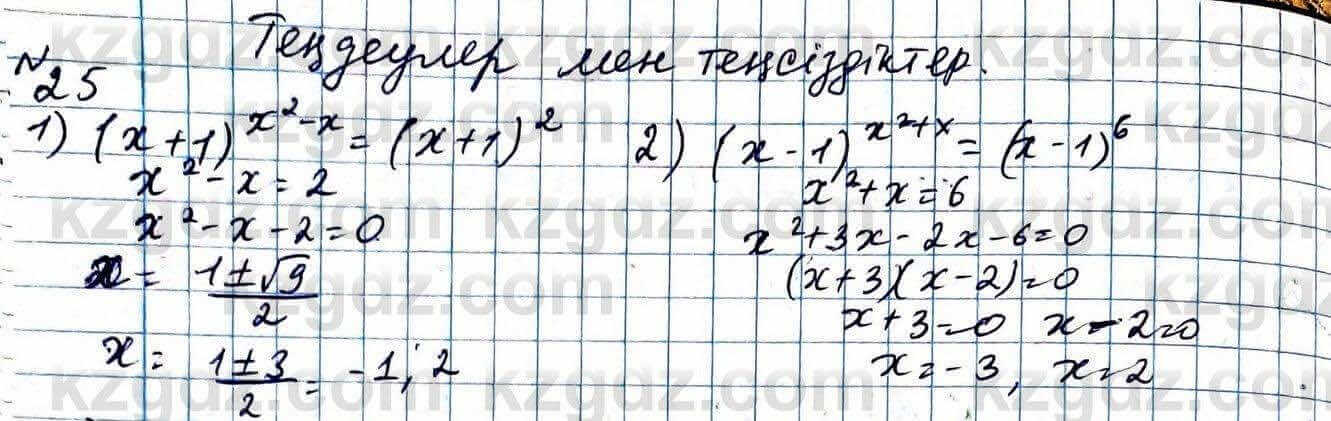 Теңдеулер мен теңсіздіктер.
№25
1) (x+1)^{x²-x} = (x+1)²
x²-x=2
x²-x-2=0
x = (1±√9)/2
x = (1±3)/2 = -1; 2
2) (x-1)^{x²+x} = (x-1)⁶
x²+x=6
x²+3x-2x-6=0
(x+3)(x-2)=0
x+3=0 x-2=0
x=-3, x=2
kzgdz.com